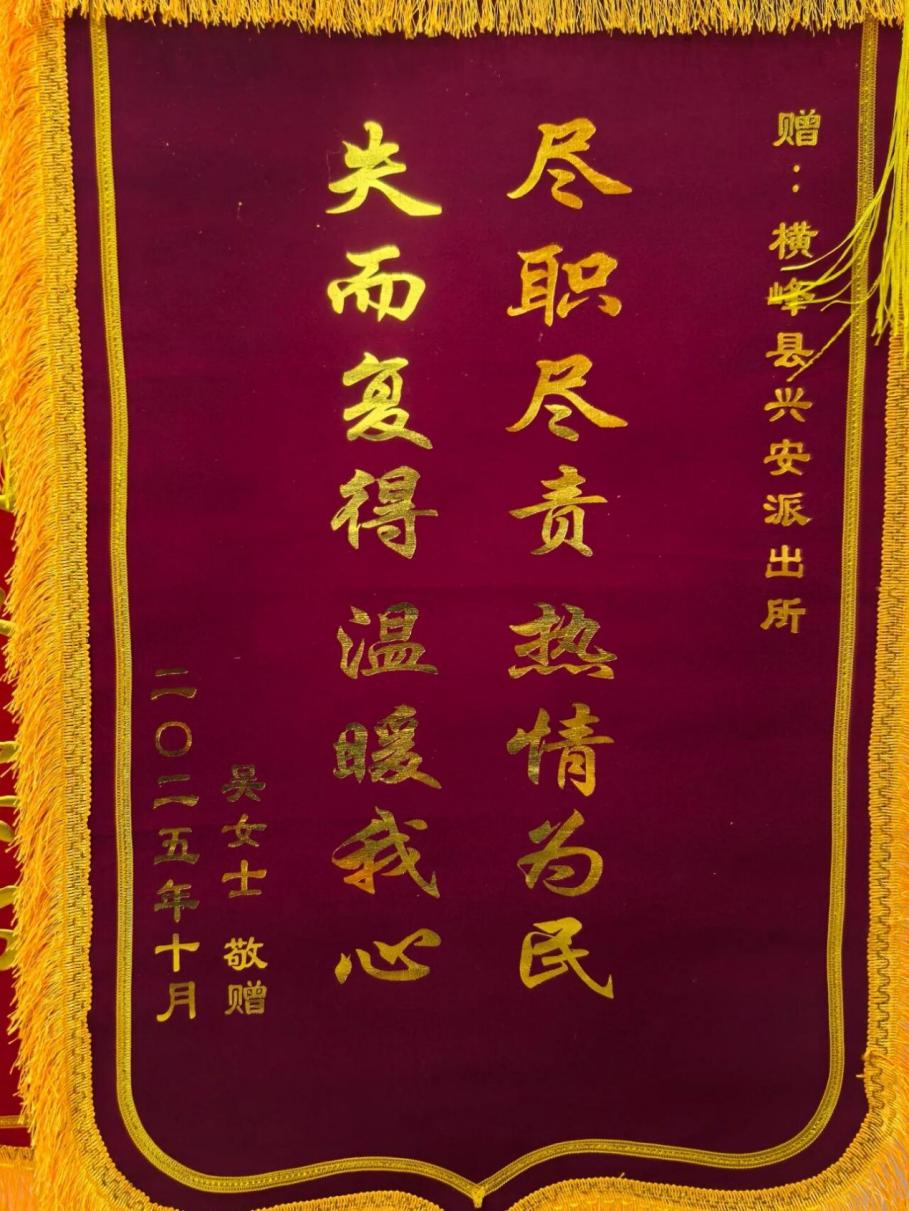 赠：横峰县兴安派出所
尽职尽责 热情为民
失而复得 温暖我心
吴女士 敬赠
二〇二五年十月